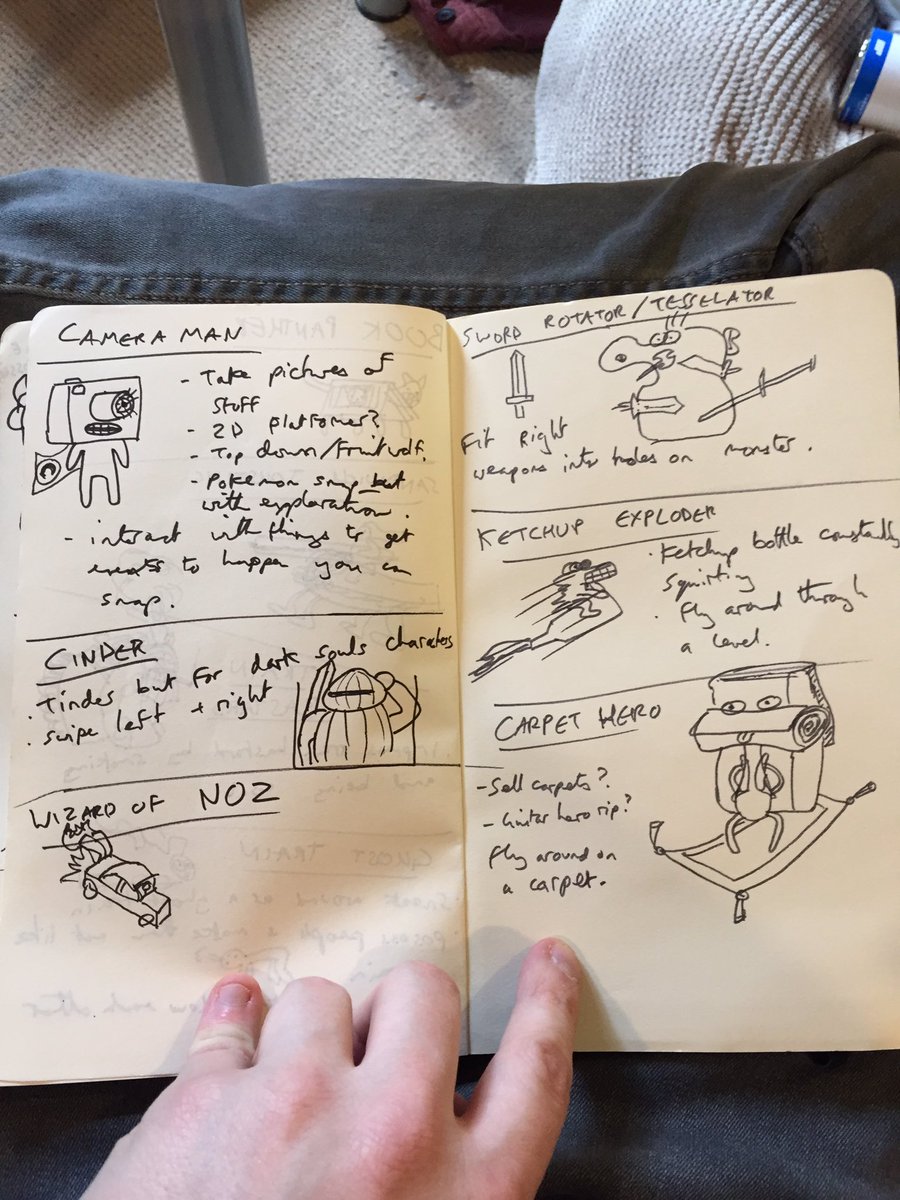 CAMERA MAN
- Take pictures of
stuff
- 2D platformer?
- Top down/
- Pokemon snap but
with exploration.
- interact with things to get
events to happen you can
snap.
CINDER
· Tinder but for dark souls characters
· swipe left + right
WIZARD OF NOZ
SWORD ROTATOR/TESSELATOR
Fit Right
weapons into holes on monster.
KETCHUP EXPLODER
· Ketchup bottle constantly
squirting
· Fly around through
a level.
CARPET HERO
- Sell carpets?
- Guitar hero rip?
Fly around on
a carpet.
BOOK PANTHER
GHOST TRAIN